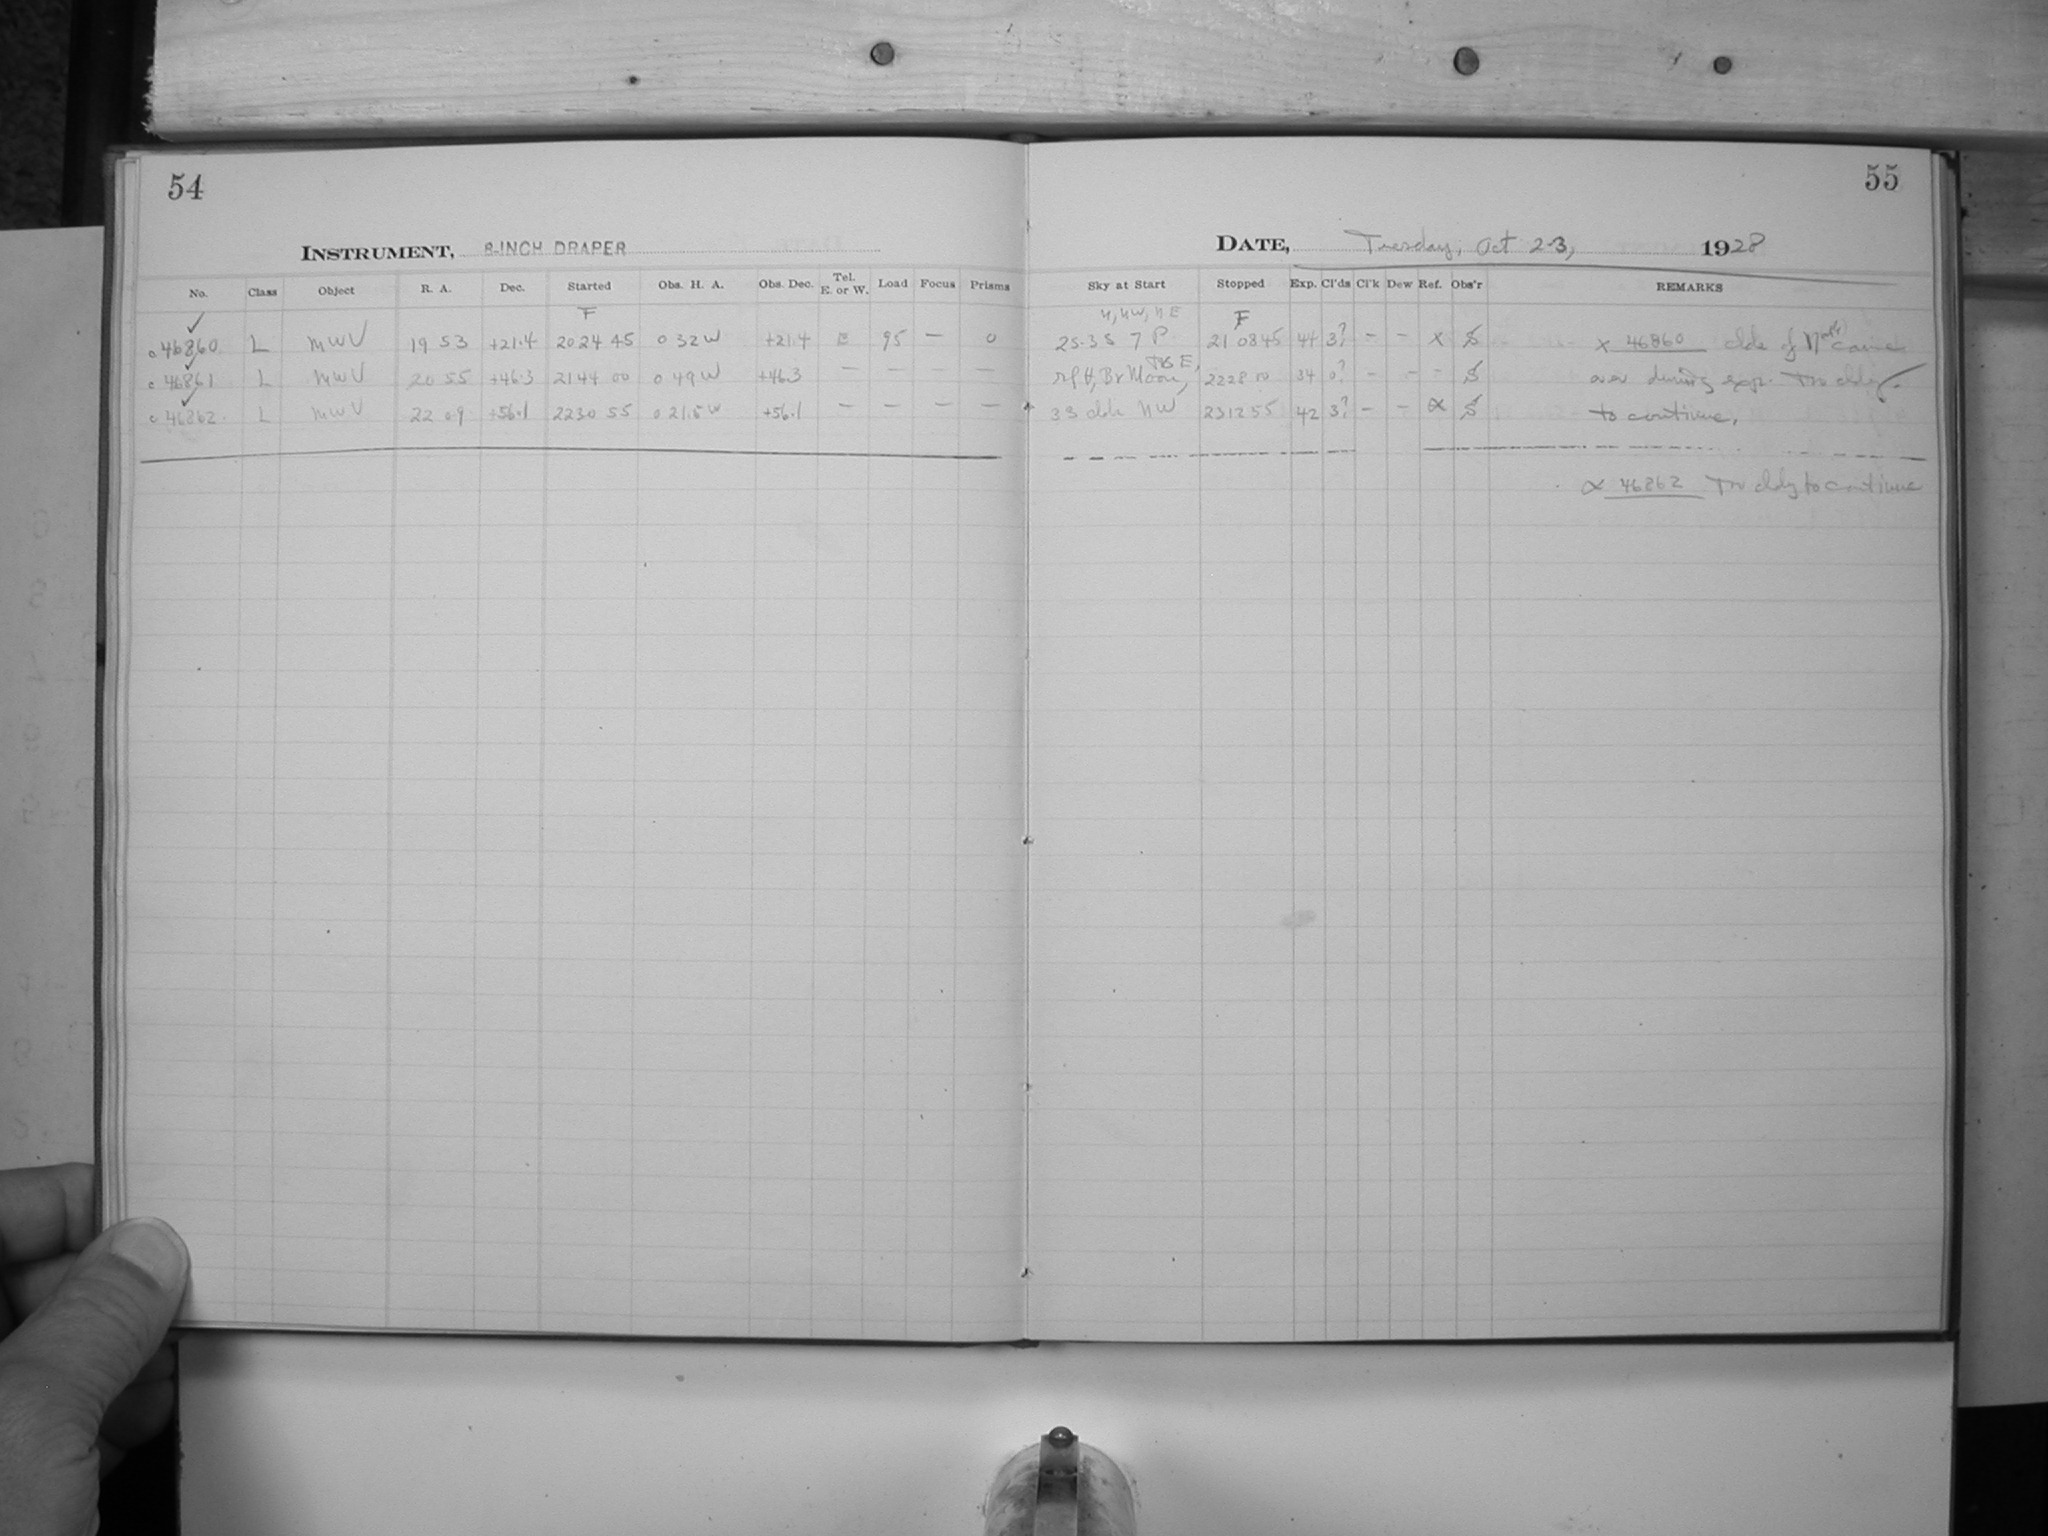 54
55
INSTRUMENT, 8-INCH DRAPER
DATE, Tuesday, Oct 2-3, 1928
No. Class Object R. A. Dec. Started Obs. H. A. Obs. Dec. Tel. E. or W. Load Focus Prisms Sky at Start Stopped Exp. Cl'ds Cl'k Dew Ref. Obs'r REMARKS
F N, NW, NE F
c 46860 L MWV 19 53 +21.4 20 24 45 0 32 W +21.4 E 95 — 0 25-35 7 P 21 08 45 44 3? - - x S x 46860 clds of came
c 46861 L MWV 20 55 +46.3 21 44 00 0 49 W +46.3 — — — — Br Moon, 22 28 00 34 0? - - - S over during exp. Too cldy
c 46862 L MWV 22 09 +56.1 22 30 55 0 21.5 W +56.1 — — — — 33 clds NW 23 12 55 42 3? - - α S to continue.
α 46862 Too cldy to continue